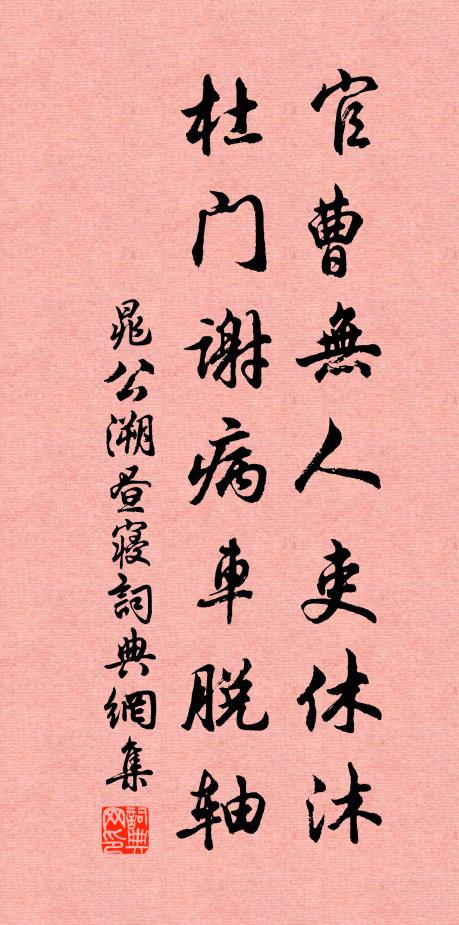 官曹無人吏休沐
杜门謝病車脱轴
晁公溯昼寝詞典網集
詞典网印